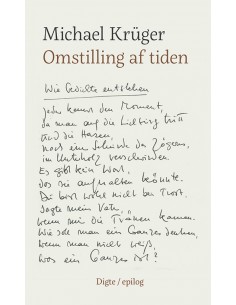 Michael Krüger
Omstilling af tiden
Wie Gedichte entstehen
Jeder kennt den Moment,
da man auf die Lichtung tritt
und die Hasen,
nach einer Sekunde des Zögerns,
im Unterholz verschwinden.
Es gibt kein Wort,
das sie aufhalten könnte.
Du bist wohl nicht bei Trost,
sagte mein Vater,
wenn mir die Tränen kamen.
Wie soll man ein Ganzes denken,
wenn man nicht weiß,
was ein Ganzes ist?
Digte / epilog